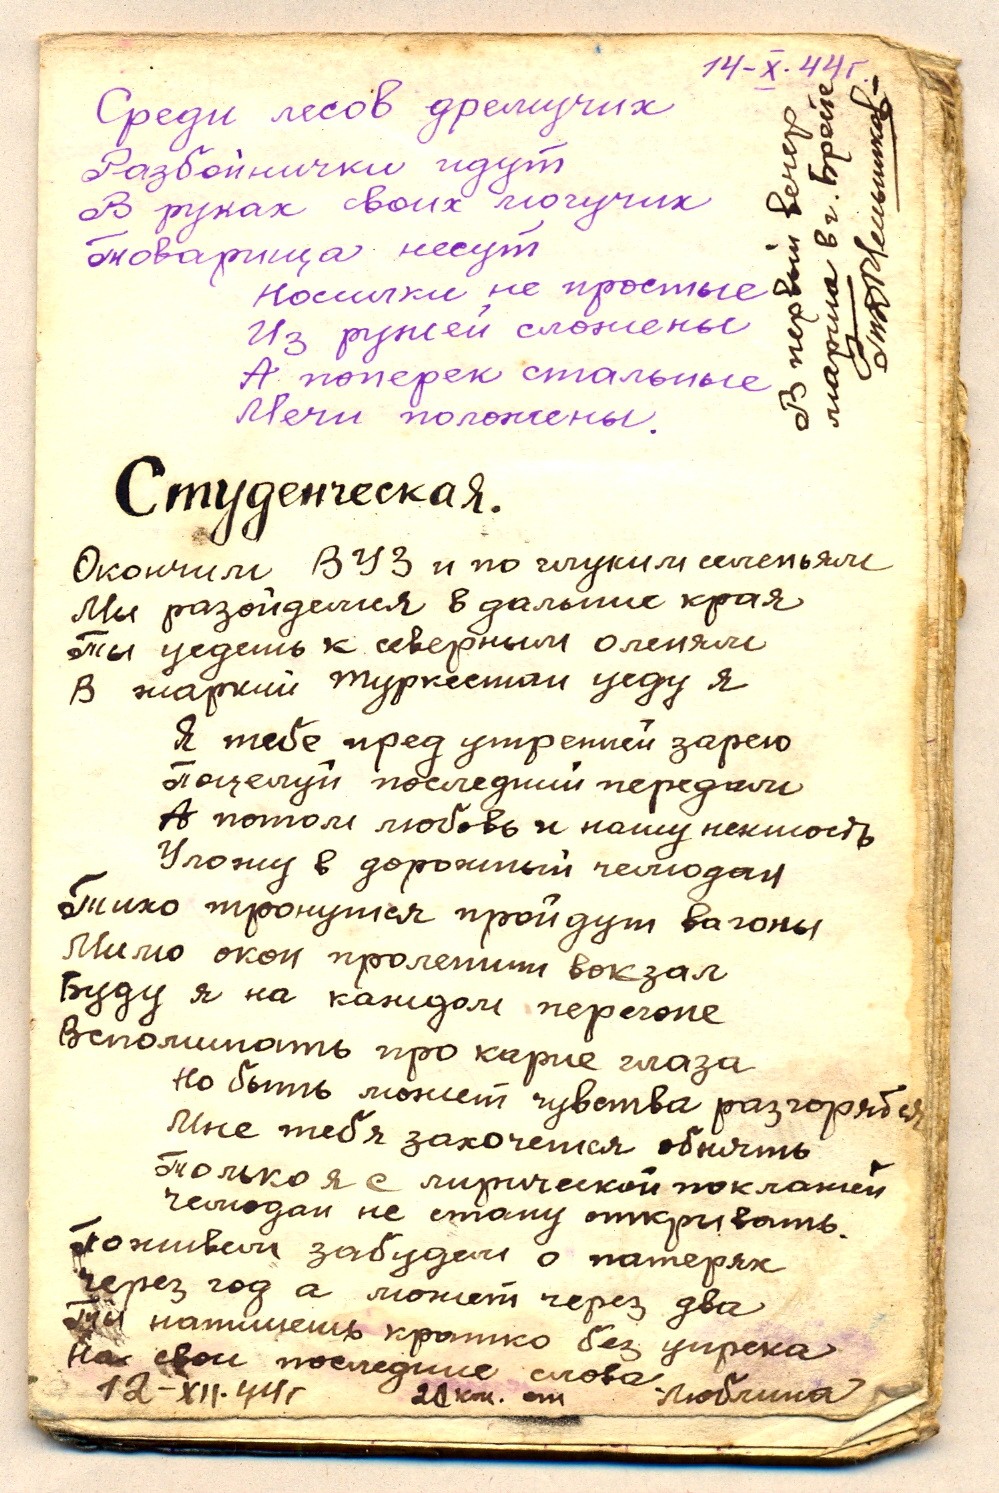 14-X.44г.
Среди лесов дремучих
Разбойнички идут
В руках своих могучих
Товарища несут
Носилки не простые
Из ружей сложены
А поперек стальные
Мечи положены.
В первый вечер
марша в г. Брайе
Студенческая.
Окончим ВУЗ и по глухим селеньям
Мы разойдемся в дальние края
Ты уедешь к северным оленям
В жаркий Туркестан уеду я
Я тебе пред утренней зарею
Поцелуй последний передам
А потом любовь и нашу нежность
Уложу в дорожный чемодан
Тихо тронутся пройдут вагоны
Мимо окон пролетит вокзал
Буду я на каждом перегоне
Вспоминать про карие глаза
Но быть может чувства разгорятся
Мне тебя захочется обнять
Только я с лирической поклажей
Чемодан не стану открывать.
Поживем забудем о потерях
Через год а может через два
Ты напишешь кротко без упрека
На свои последние слова
12-XII.44г 20 км. от Люблина